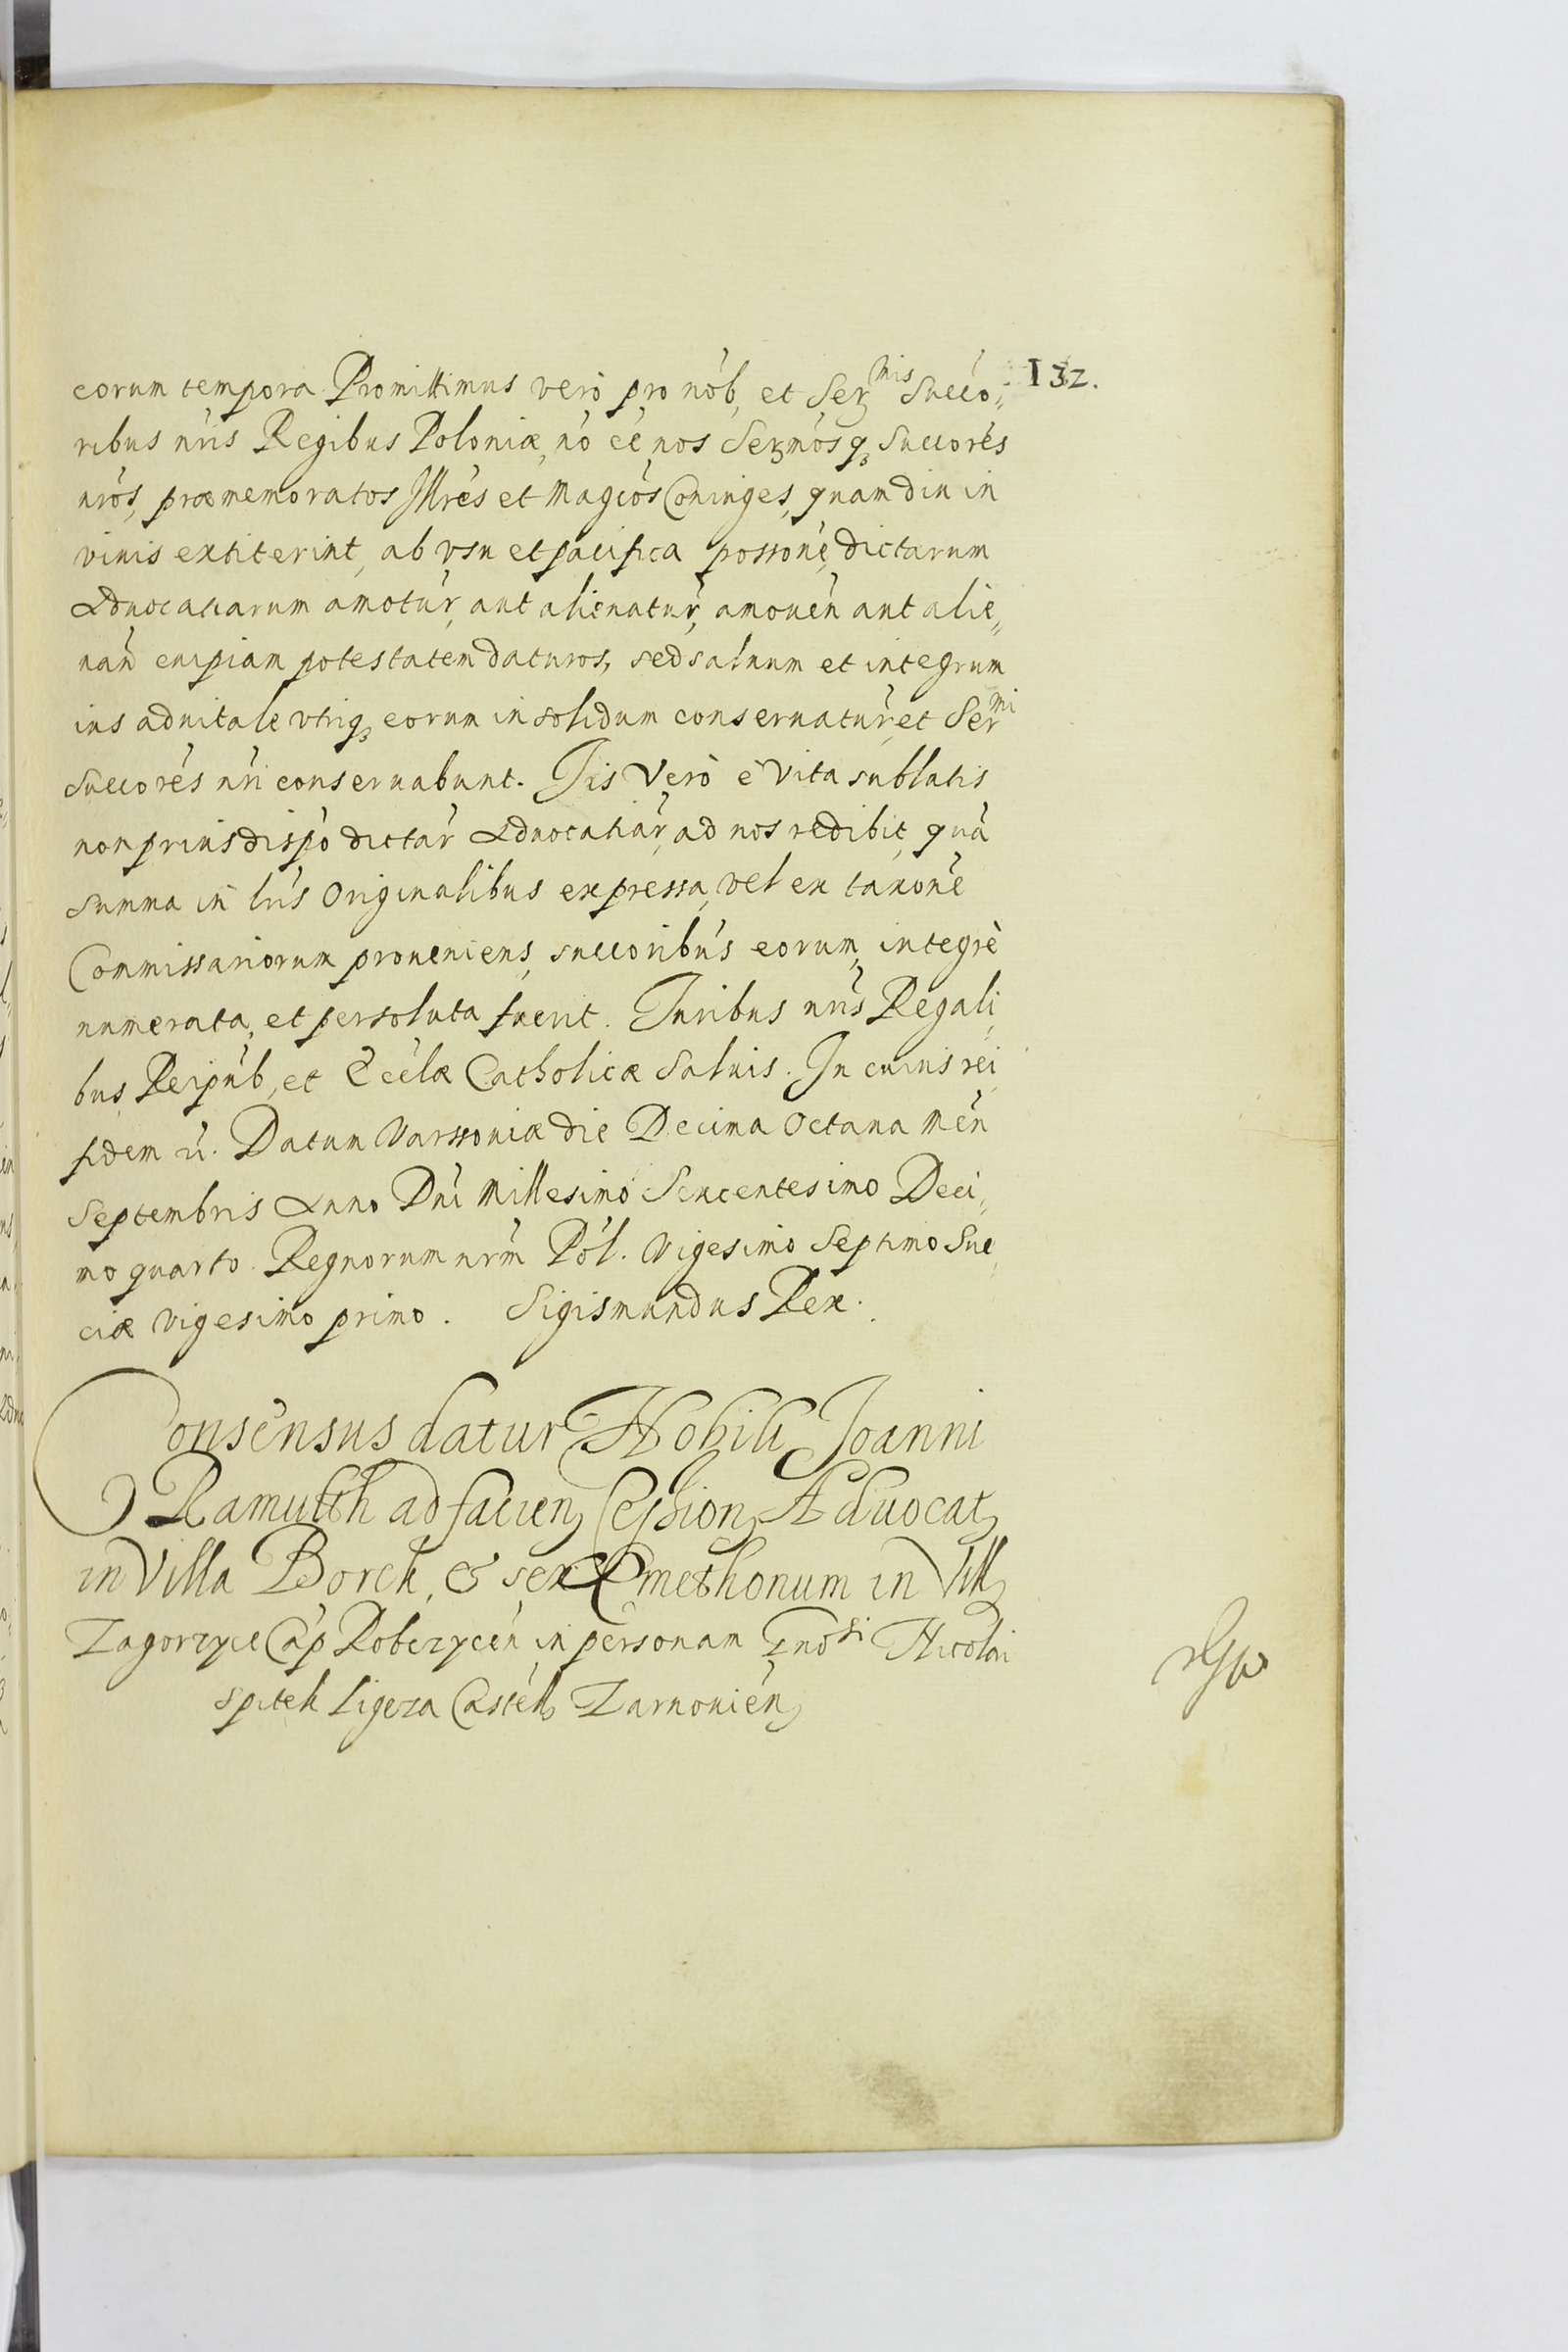 132.
eorum tempora. Promittimus verò pro nob, et Ser mis Succo-
ribus nris Regibus Poloniæ, nō ēē, nos Sermosq Succores
nros, præmemoratos Illres et Magcos Coniuges, quamdiu in
viuis extiterint, ab vsu et pacifica possone, dictarum
Aduocatiarum amotur, aut alienatur, amouen aut alie-
nan cuipiam potestatem daturos, sed saluum et integrum
ius aduitale vtriq eorum in solidum conseruatur, et Ser mi
Succores nri conseruabunt. Iis Verò è vita sublatis
non prius dispo dictar Aduocatiar, ad nos redibit, quā
summa in lris Originalibus expressa, vel ex taxone
Commissariorum proueniens, succoribus eorum, integrè
numerata, et persoluta fuerit. Iuribus nris Regali,
bus Reipub, et Ecclæ Catholicæ saluis. In cuius rei
fidem
Datum Varssouiæ die Decima Octaua Men
Septembris Anno Dni Millesimo Sexcentesimo Deci-
mo quarto. Regnorum nrm Pol. Vigesimo Septimo Sue,
ciæ vigesimo primo. Sigismundus Rex.
Consensus datur Nobili Joanni
Ramulth ad facien Cession Aduocat
in Villa Borek, & sex Cmethonum in Vill
Zagorzyce Cap Robczycen in personam Gnosi Nicolai
Spitek Ligeza Castell Zarnouien